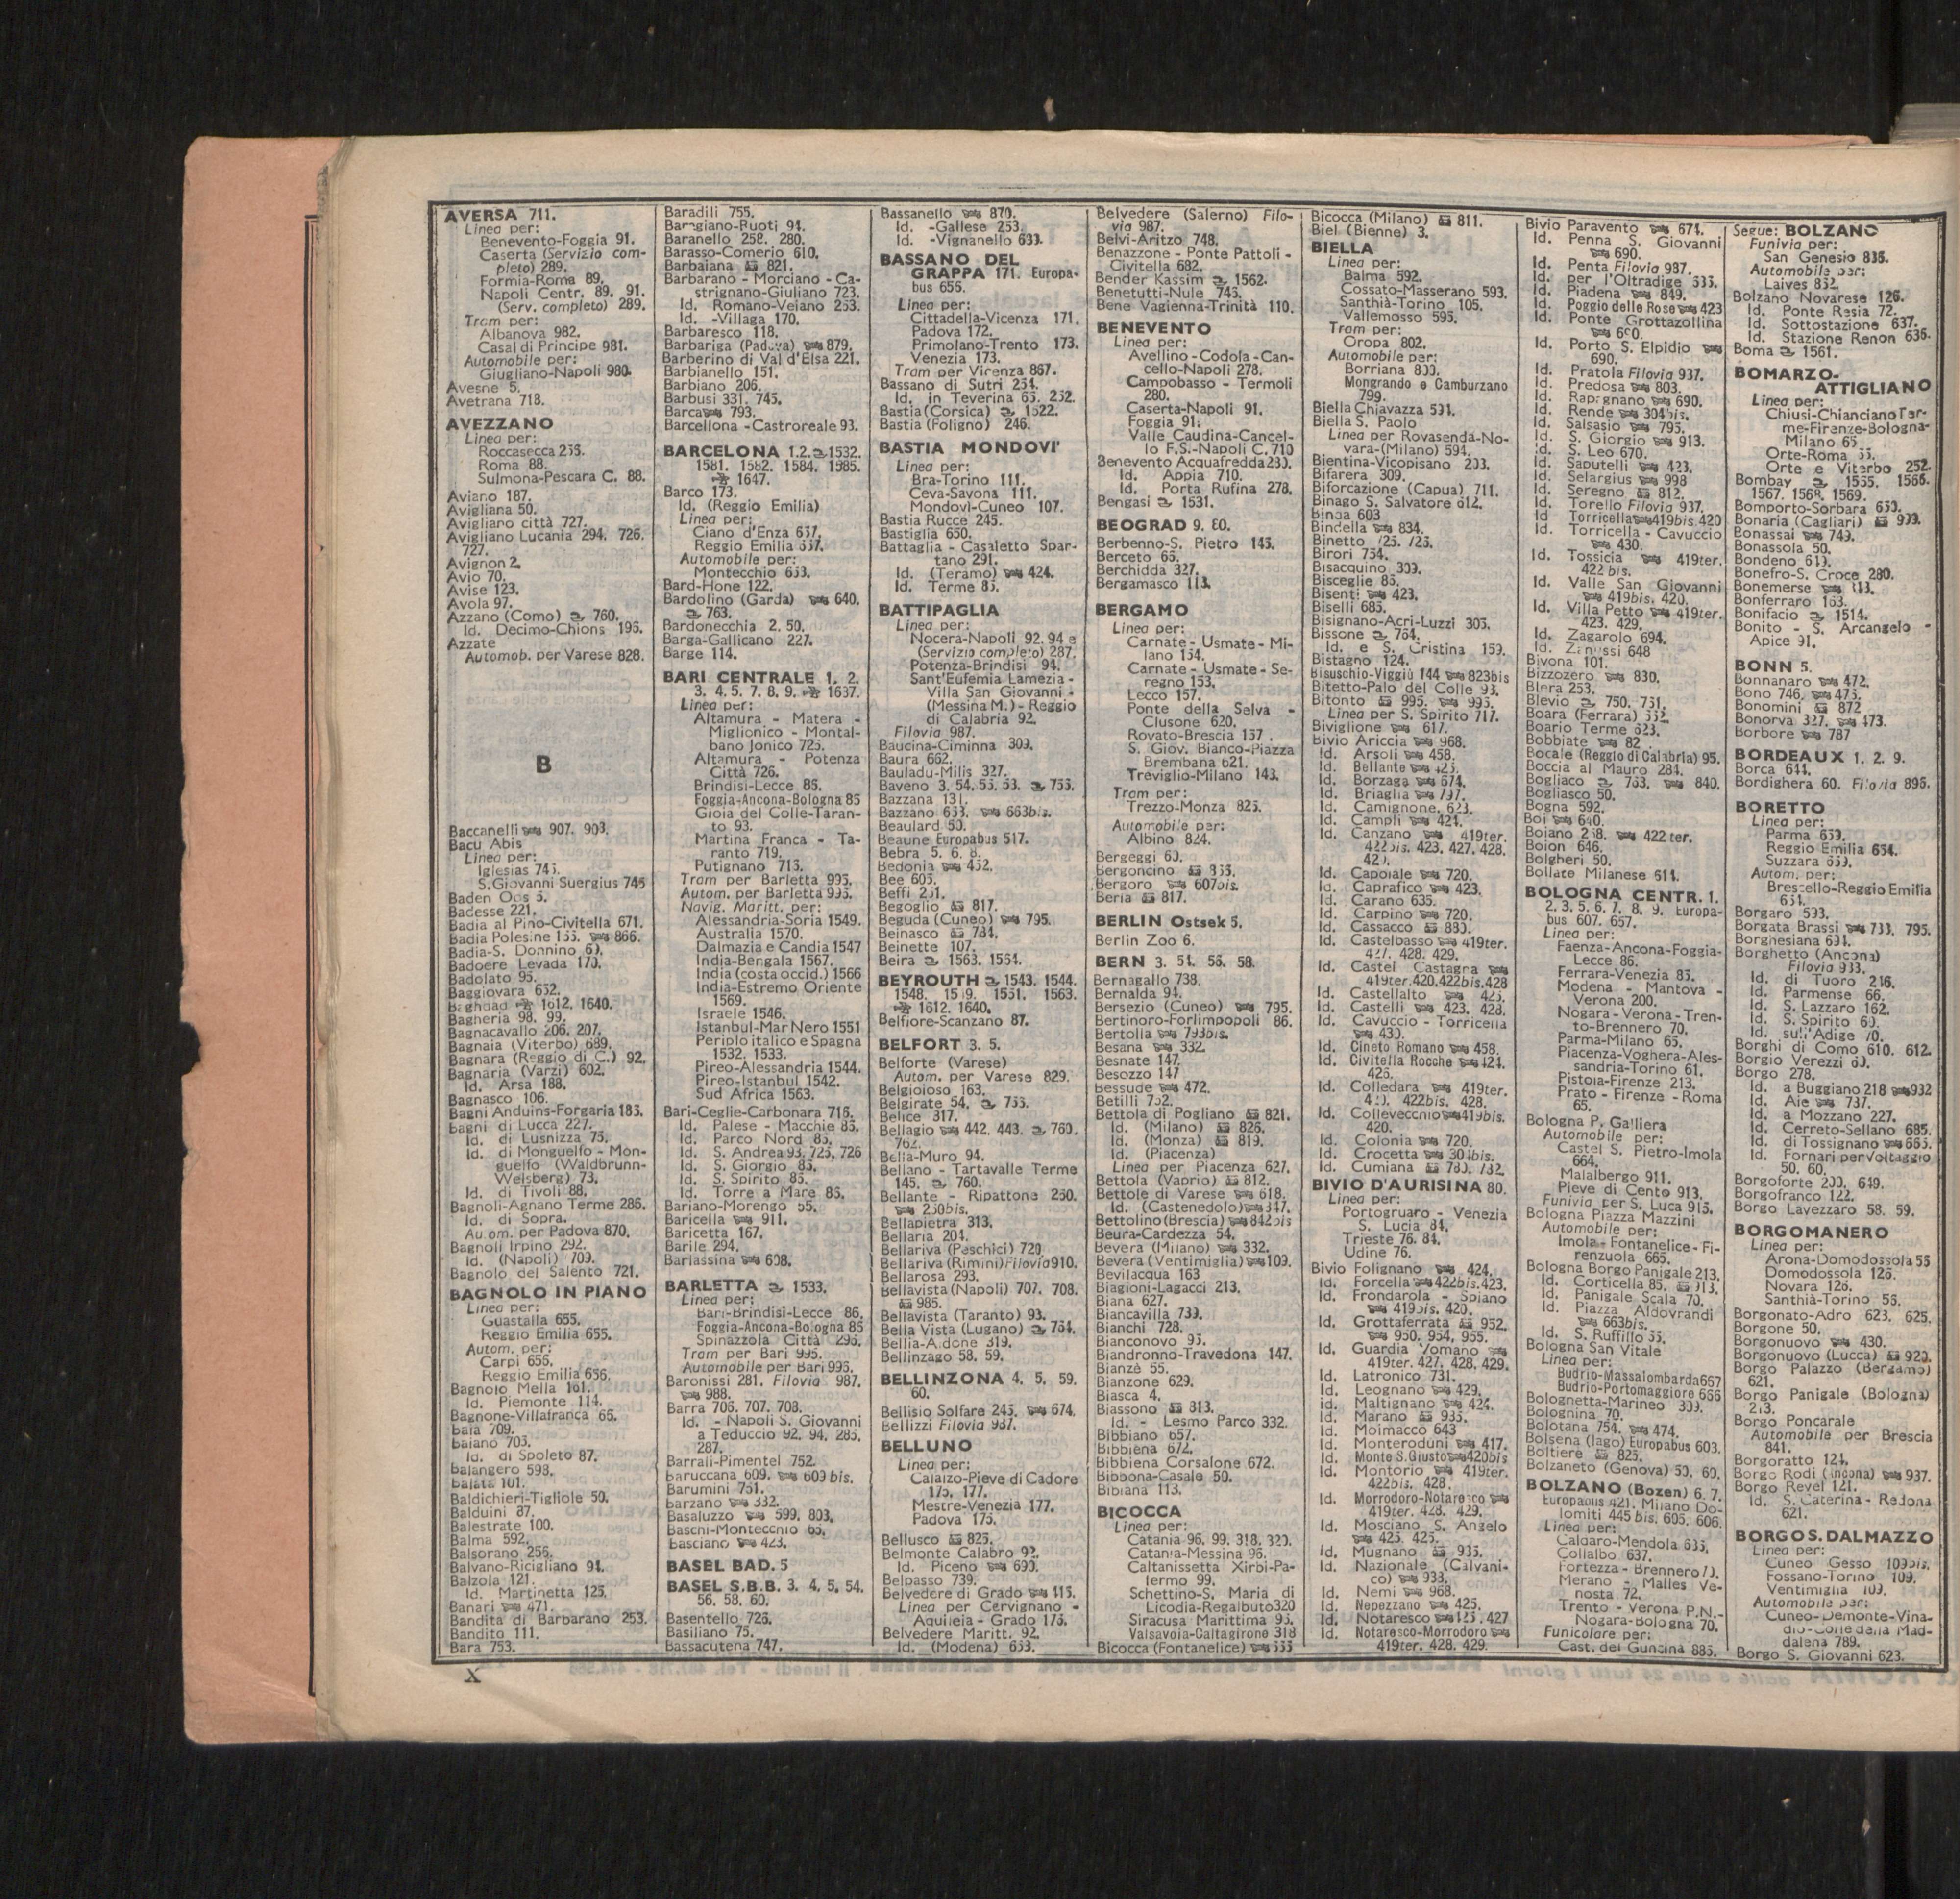 AVERSA 711.
Linea per:
Benevento-Foggia 91.
Caserta (Servizio com-
pleto) 289.
Formia-Roma 89.
Napoli Centr. 89. 91.
(Serv. completo) 289.
Tram per:
Albanova 982.
Casal di Principe 981.
Automobile per:
Giugliano-Napoli 980.
Avesne 5.
Avetrana 718.
AVEZZANO
Linea per:
Roccasecca 255.
Roma 88.
Sulmona-Pescara C. 88.
Aviano 187.
Avigliana 50.
Avigliano città 727.
Avigliano Lucania 294. 726.
727.
Avignon 2.
Avio 70.
Avise 123.
Avola 97.
Azzano (Como) 760.
Id. Decimo-Chions 195.
Azzate
Automob. per Varese 828.
B
Baccanelli 907. 903.
Bacu Abis
Linea per:
Iglesias 745.
S.Giovanni Suergius 745
Baden Oos 5.
Badesse 221.
Badia al Pino-Civitella 671.
Badia Polesine 155. 866.
Badia-S. Donnino 69.
Badoere Levada 170.
Badolato 95.
Baggiovara 652.
Baghdad 1612. 1640.
Bagheria 98. 99.
Bagnacavallo 206. 207.
Bagnaia (Viterbo) 689.
Bagnara (Reggio di C.) 92.
Bagnaria (Varzi) 602.
Id. Arsa 188.
Bagnasco 106.
Bagni Anduins-Forgaria 185.
Bagni di Lucca 227.
Id. di Lusnizza 75.
Id. di Monguelfo - Mon-
guelfo (Waldbrunn-
Welsberg) 73.
Id. di Tivoli 88.
Bagnoli-Agnano Terme 286.
Id. di Sopra.
Autom. per Padova 870.
Bagnoli Irpino 292.
Id. (Napoli) 709.
Bagnolo del Salento 721.
BAGNOLO IN PIANO
Linea per:
Guastalla 655.
Reggio Emilia 655.
Autom. per:
Carpi 656.
Reggio Emilia 656.
Bagnolo Mella 161.
Id. Piemonte 114.
Bagnone-Villafranca 66.
Baia 709.
Baiano 705.
Id. di Spoleto 87.
Balangero 598.
Balata 101.
Baldichieri-Tigliole 50.
Balduini 87.
Balestrate 100.
Balma 592.
Balsorano 256.
Balvano-Ricigliano 94.
Balzola 121.
Id. Martinetta 125.
Banari 471.
Bandita di Barbarano 253.
Bandito 111.
Bara 753.
Baradili 755.
Baragiano-Ruoti 94.
Baranello 258. 280.
Barasso-Comerio 610.
Barbaiana 821.
Barbarano - Morciano - Ca-
strignano-Giuliano 723.
Id. Romano-Veiano 253.
Id. -Villaga 170.
Barbaresco 118.
Barbariga (Padova) 879.
Barberino di Val d'Elsa 221.
Barbianello 151.
Barbiano 206.
Barbusi 331. 745.
Barca 793.
Barcellona -Castroreale 93.
BARCELONA 1.2. 1532.
1581. 1582. 1584. 1585.
1647.
Barco 173.
Id. (Reggio Emilia)
Linea per:
Ciano d'Enza 657.
Reggio Emilia 657.
Automobile per:
Montecchio 653.
Bard-Hone 122.
Bardolino (Garda) 640.
763.
Bardonecchia 2. 50.
Barga-Gallicano 227.
Barge 114.
BARI CENTRALE 1. 2.
3. 4. 5. 7. 8. 9. 1637.
Linea per:
Altamura - Matera -
Miglionico - Montal-
bano Jonico 725.
Altamura - Potenza
Città 726.
Brindisi-Lecce 86.
Foggia-Ancona-Bologna 85
Gioia del Colle-Taran-
to 93.
Martina Franca - Ta-
ranto 719.
Putignano 715.
Tram per Barletta 995.
Autom. per Barletta 995.
Navig. Maritt. per:
Alessandria-Soria 1549.
Australia 1570.
Dalmazia e Candia 1547
India-Bengala 1567.
India (costa occid.) 1566
India-Estremo Oriente
1569.
Israele 1546.
Istanbul-Mar Nero 1551
Periplo italico e Spagna
1532. 1533.
Pireo-Alessandria 1544.
Pireo-Istanbul 1542.
Sud Africa 1563.
Bari-Ceglie-Carbonara 716.
Id. Palese - Macchie 85.
Id. Parco Nord 85.
Id. S. Andrea 93. 725. 726
Id. S. Giorgio 85.
Id. S. Spirito 85.
Id. Torre a Mare 85.
Bariano-Morengo 55.
Baricella 911.
Baricetta 167.
Barile 294.
Barlassina 608.
BARLETTA 1533.
Linea per:
Bari-Brindisi-Lecce 86.
Foggia-Ancona-Bologna 85
Spinazzola Città 296.
Tram per Bari 995.
Automobile per Bari 995.
Baronissi 281. Filovia 987.
988.
Barra 706. 707. 708.
Id. - Napoli S. Giovanni
a Teduccio 92. 94. 285.
287.
Barrali-Pimentel 752.
Baruccana 609. 609 bis.
Barumini 751.
Barzano 332.
Basaluzzo 599. 803.
Baschi-Montecchio 65.
Basciano 423.
BASEL BAD. 5
BASEL S.B.B. 3. 4. 5. 54.
56. 58. 60.
Basentello 726.
Basiliano 75.
Bassacutena 747.
Bassanello 870.
Id. -Gallese 253.
Id. -Vignanello 690.
BASSANO DEL
GRAPPA 171. Europa-
bus 655.
Linea per:
Cittadella-Vicenza 171.
Padova 172.
Primolano-Trento 173.
Venezia 173.
Tram per Vicenza 867.
Bassano di Sutri 254.
Id. in Teverina 65. 252.
Bastia (Corsica) 1522.
Bastia (Foligno) 246.
BASTIA MONDOVI'
Linea per:
Bra-Torino 111.
Ceva-Savona 111.
Mondovì-Cuneo 107.
Bastia Rucce 245.
Bastiglia 650.
Battaglia - Casaletto Spar-
tano 291.
Id. (Teramo) 424.
Id. Terme 85.
BATTIPAGLIA
Linea per:
Nocera-Napoli 92. 94 e
(Servizio completo) 287.
Potenza-Brindisi 94.
Sant'Eufemia Lamezia -
Villa San Giovanni -
(Messina M.) - Reggio
di Calabria 92.
Filovia 987.
Baucina-Ciminna 309.
Baura 662.
Bauladu-Milis 327.
Baveno 3. 54. 55. 53. 755.
Bazzana 131.
Bazzano 653. 663bis.
Beaulard 50.
Beaune Europabus 517.
Bebra 5. 6. 8.
Bedonia 452.
Bee 605.
Beffi 251.
Begoglio 817.
Beguda (Cuneo) 795.
Beinasco 784.
Beinette 107.
Beira 1563. 1564.
BEYROUTH 1543. 1544.
1548. 1549. 1551. 1563.
1612. 1640.
Belfiore-Scanzano 87.
BELFORT 3. 5.
Belforte (Varese)
Autom. per Varese 829.
Belgioioso 163.
Belgirate 54. 755.
Belice 317.
Bellagio 442. 443. 760.
762.
Bella-Muro 94.
Bellano - Tartavalle Terme
145. 760.
Bellante - Ripattone 250.
250bis.
Bellapietra 313.
Bellaria 204.
Bellariva (Peschici) 720
Bellariva (Rimini) Filovia 910.
Bellarosa 293.
Bellavista (Napoli) 707. 708.
985.
Bellavista (Taranto) 93.
Bella Vista (Lugano) 764.
Bellia-Aidone 319.
Bellinzago 58. 59.
BELLINZONA 4. 5. 59.
60.
Bellisio Solfare 245. 674.
Bellizzi Filovia 987.
BELLUNO
Linea per:
Calalzo-Pieve di Cadore
175. 177.
Mestre-Venezia 177.
Padova 175.
Bellusco 825.
Belmonte Calabro 92.
Id. Piceno 690.
Belpasso 739.
Belvedere di Grado 415.
Linea per Cervignano -
Aquileia - Grado 176.
Belvedere Maritt. 92.
Id. (Modena) 653.
Belvedere (Salerno) Filo-
via 987.
Belvi-Aritzo 748.
Benazzone - Ponte Pattoli -
Civitella 682.
Bender Kassim 1562.
Benetutti-Nule 745.
Bene Vagienna-Trinità 110.
BENEVENTO
Linea per:
Avellino-Codola-Can-
cello-Napoli 278.
Campobasso - Termoli
280.
Caserta-Napoli 91.
Foggia 91.
Valle Caudina-Cancel-
lo F.S.-Napoli C. 710
Benevento Acquafredda 280.
Id. Appia 710.
Id. Porta Rufina 278.
Bengasi 1531.
BEOGRAD 9. 80.
Berbenno-S. Pietro 145.
Berceto 66.
Berchidda 327.
Bergamasco 113.
BERGAMO
Linea per:
Carnate - Usmate - Mi-
lano 154.
Carnate - Usmate - Se-
regno 153.
Lecco 157.
Ponte della Selva -
Clusone 620.
Rovato-Brescia 157.
S. Giov. Bianco-Piazza
Brembana 621.
Treviglio-Milano 143.
Tram per:
Trezzo-Monza 825.
Automobile per:
Albino 824.
Bergeggi 60.
Bergoncino 865.
Bergoro 607bis.
Beria 817.
BERLIN Ostsek 5.
Berlin Zoo 6.
BERN 3. 54. 56. 58.
Bernagallo 738.
Bernalda 94.
Bersezio (Cuneo) 795.
Bertinoro-Forlimpopoli 86.
Bertolla 793bis.
Besana 332.
Besnate 147.
Besozzo 147
Bessude 472.
Betilli 752.
Bettola di Pogliano 821.
Id. (Milano) 826.
Id. (Monza) 819.
Id. (Piacenza)
Linea per Piacenza 627.
Bettola (Vaprio) 812.
Bettole di Varese 618.
Id. (Castenedolo) 847.
Bettolino (Brescia) 842bis
Beura-Cardezza 54.
Bevera (Milano) 332.
Bevera (Ventimiglia) 109.
Bevilacqua 163
Biagioni-Lagacci 213.
Biana 627.
Biancavilla 739.
Bianchi 728.
Bianconovo 95.
Biandronno-Travedona 147.
Bianzè 55.
Bianzone 629.
Biasca 4.
Biassono 813.
Id. - Lesmo Parco 332.
Bibbiano 657.
Bibbiena 672.
Bibbiena Corsalone 672.
Bibbona-Casale 50.
Bibiana 113.
BICOCCA
Linea per:
Catania 96. 99. 318. 320.
Catania-Messina 96.
Caltanissetta Xirbi-Pa-
lermo 99.
Schettino-S. Maria di
Licodia-Regalbuto 320
Siracusa Marittima 96.
Valsavoia-Caltagirone 318
Bicocca (Fontanelice) 665
Bicocca (Milano) 811.
Biel (Bienne) 3.
BIELLA
Linea per:
Balma 592.
Cossato-Masserano 593.
Santhià-Torino 105.
Vallemosso 595.
Tram per:
Oropa 802.
Automobile per:
Borriana 800.
Mongrando e Camburzano
799.
Biella Chiavazza 591.
Biella S. Paolo
Linea per Rovasenda-No-
vara-(Milano) 594.
Bientina-Vicopisano 203.
Bifarera 309.
Biforcazione (Capua) 711.
Binago S. Salvatore 612.
Binda 603
Bindella 834.
Binetto 725. 726.
Birori 754.
Bisacquino 309.
Bisceglie 85.
Bisenti 423.
Biselli 685.
Bisignano-Acri-Luzzi 305.
Bissone 764.
Id. e S. Cristina 159.
Bistagno 124.
Bisuschio-Viggiù 144 823bis
Bitetto-Palo del Colle 93.
Bitonto 995. 995.
Linea per S. Spirito 717.
Biviglione 617.
Bivio Ariccia 968.
Id. Arsoli 458.
Id. Bellante 425.
Id. Borzaga 674.
Id. Briaglia 797.
Id. Camignone. 623.
Id. Campli 424.
Id. Canzano 419ter.
422bis. 423. 427. 428.
429.
Id. Capoiale 720.
Id. Caprafico 423.
Id. Carano 635.
Id. Carpino 720.
Id. Cassacco 880.
Id. Castelbasso 419ter.
427. 428. 429.
Id. Castel Castagna
419ter.420.422bis.428
Id. Castellalto 425.
Id. Castelli 423. 428.
Id. Cavuccio - Torricella
430.
Id. Cineto Romano 458.
Id. Civitella Rocche 424.
426.
Id. Colledara 419ter.
420. 422bis. 428.
Id. Collevecchio 419bis.
420.
Id. Colonia 720.
Id. Crocetta 304bis.
Id. Cumiana 780. 782.
BIVIO D'AURISINA 80.
Linea per:
Portogruaro - Venezia
S. Lucia 84.
Trieste 76. 84.
Udine 76.
Bivio Folignano 424.
Id. Forcella 422bis.423.
Id. Frondarola - Spiano
419bis. 420.
Id. Grottaferrata 952.
950. 954. 955.
Id. Guardia Vomano
419ter. 427. 428. 429.
Id. Latronico 731.
Id. Leognano 429.
Id. Maltignano 424.
Id. Marano 935.
Id. Moimacco 643
Id. Monteroduni 417.
Id. Monte S.Giusto 420bis
Id. Montorio 419ter.
422bis. 428.
Id. Morrodoro-Notaresco
419ter. 428. 429.
Id. Mosciano S. Angelo
425. 425.
Id. Mugnano 935.
Id. Nazionale (Calvani-
co) 938.
Id. Nemi 968.
Id. Nepezzano 425.
Id. Notaresco 425. 427
Id. Notaresco-Morrodoro
419ter. 428. 429.
Bivio Paravento 674.
Id. Penna S. Giovanni
690.
Id. Penta Filovia 987.
Id. per l'Oltradige 635.
Id. Piadena 849.
Id. Poggio delle Rose 423
Id. Ponte Grottazollina
690.
Id. Porto S. Elpidio
690.
Id. Pratola Filovia 937.
Id. Predosa 803.
Id. Rapagnano 690.
Id. Rende 304bis.
Id. Salsasio 795.
Id. S. Giorgio 913.
Id. S. Leo 670.
Id. Saputelli 423.
Id. Selargius 998
Id. Seregno 812.
Id. Torello Filovia 937.
Id Torricella 419bis.420
Id. Torricella - Cavuccio
430.
Id. Tossicia 419ter.
422 bis.
Id. Valle San Giovanni
419bis. 420.
Id. Villa Petto 419ter.
423. 429.
Id. Zagarolo 694.
Id. Zanussi 648
Bivona 101.
Bizzozero 830.
Blera 253.
Blevio 750. 751.
Boara (Ferrara) 332.
Boario Terme 623.
Bobbiate 82
Bocale (Reggio di Calabria) 95.
Boccia al Mauro 284.
Bogliaco 763. 840.
Bogliasco 50.
Bogna 592.
Boi 640.
Boiano 258. 422 ter.
Boion 646.
Bolgheri 50.
Bollate Milanese 614.
BOLOGNA CENTR. 1.
2. 3. 5. 6. 7. 8. 9. Europa-
bus 607. 657.
Linea per:
Faenza-Ancona-Foggia-
Lecce 86.
Ferrara-Venezia 85.
Modena - Mantova -
Verona 200.
Nogara - Verona - Tren-
to-Brennero 70.
Parma-Milano 65.
Piacenza-Voghera-Ales-
sandria-Torino 61.
Pistoia-Firenze 213.
Prato - Firenze - Roma
65.
Bologna P. Galliera
Automobile per:
Castel S. Pietro-Imola
664.
Malalbergo 911.
Pieve di Cento 913.
Funivia per S. Luca 915.
Bologna Piazza Mazzini
Automobile per:
Imola-Fontanelice-Fi-
renzuola 665.
Bologna Borgo Panigale 213.
Id. Corticella 85. 913.
Id. Panigale Scala 70.
Id. Piazza Aldovrandi
663bis.
Id. S. Ruffillo 55.
Bologna San Vitale
Linea per:
Budrio-Massalombarda 667
Budrio-Portomaggiore 666
Bolognetta-Marineo 309.
Bolognina 70.
Bolotana 754. 474.
Bolsena (lago) Europabus 603.
Boltiere 825.
Bolzaneto (Genova) 50. 60.
BOLZANO (Bozen) 6. 7.
Europabus 421. Milano Do-
lomiti 445 bis. 605. 606.
Linea per:
Caldaro-Mendola 635.
Collalbo 637.
Fortezza - Brennero 70.
Merano - Malles Ve-
nosta 72.
Trento - Verona P.N.-
Nogara-Bologna 70.
Funicolare per:
Cast. del Guncina 885.
Segue: BOLZANO
Funivia per:
San Genesio 886.
Automobile per:
Laives 852.
Bolzano Novarese 126.
Id. Ponte Resia 72.
Id. Sottostazione 637.
Id. Stazione Renon 636.
Boma 1561.
BOMARZO-
ATTIGLIANO
Linea per:
Chiusi-Chianciano Ter-
me-Firenze-Bologna-
Milano 65
Orte-Roma 65.
Orte e Viterbo 252.
Bombay 1555. 1566.
1567. 1568. 1569.
Bomporto-Sorbara 650.
Bonaria (Cagliari) 999.
Bonassai 749.
Bonassola 50.
Bondeno 619.
Bonefro-S. Croce 280.
Bonemerse 843.
Bonferraro 163.
Bonifacio 1514.
Bonito - S. Arcangelo -
Apice 91.
BONN 5.
Bonnanaro 472.
Bono 746. 475.
Bonomini 872
Bonorva 327. 473.
Borbore 787
BORDEAUX 1. 2. 9.
Borca 644.
Bordighera 60. Filovia 896.
BORETTO
Linea per:
Parma 659.
Reggio Emilia 654.
Suzzara 659.
Autom. per:
Brescello-Reggio Emilia
654.
Borgaro 593.
Borgata Brassi 733. 795.
Borghesiana 694.
Borghetto (Ancona)
Filovia 933.
Id. di Tuoro 216.
Id. Parmense 66.
Id. S. Lazzaro 162.
Id. S. Spirito 60.
Id. sull'Adige 70.
Borghi di Como 610. 612.
Borgio Verezzi 60.
Borgo 278.
Id. a Buggiano 218 932
Id. Aie 737.
Id. a Mozzano 227.
Id. Cerreto-Sellano 685.
Id. di Tossignano 665.
Id. Fornari per Voltaggio
50. 60.
Borgoforte 200. 649.
Borgofranco 122.
Borgo Lavezzaro 58. 59.
BORGOMANERO
Linea per:
Arona-Domodossola 55
Domodossola 126.
Novara 126.
Santhià-Torino 56.
Borgonato-Adro 623. 625.
Borgone 50.
Borgonuovo 430.
Borgonuovo (Lucca) 920.
Borgo Palazzo (Bergamo)
621.
Borgo Panigale (Bologna)
213.
Borgo Poncarale
Automobile per Brescia
841.
Borgoratto 124.
Borgo Rodi (Ancona) 937.
Borgo Revel 121.
Id. S. Caterina - Redona
621.
BORGO S. DALMAZZO
Linea per:
Cuneo Gesso 109bis.
Fossano-Torino 109.
Ventimiglia 109.
Automobile per:
Cuneo-Demonte-Vina-
dio-Colle della Mad-
dalena 789.
Borgo S. Giovanni 623.
X